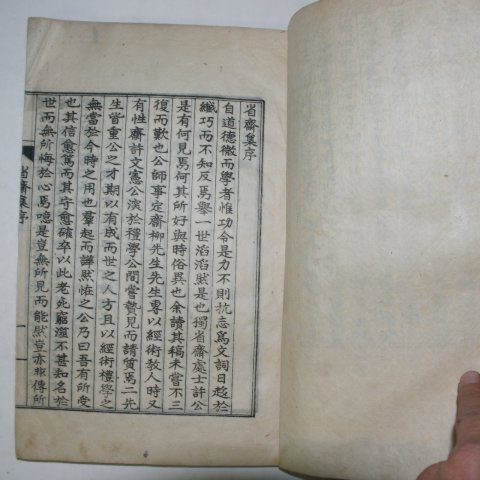 省齋集序
自道德微而學者惟功令是力不則抗志爲文詞日趍於
纖巧而不知反焉擧一世滔滔然是也獨省齋處士許公
是有何見焉何其所好與時俗異也余讀其稿未嘗不三
復而歎也公師事定齋柳先生先生專以經術敎人時又
有性齋許文憲公演於禮學公間嘗贄見而請質焉二先
生皆重公之才期以有成而世之人方且以經術禮學之
無當於今時之用也羣起而譁然恠之公乃曰吾有所受
也其信愈篤而其守愈確卒以此老死窮溫不甚知名於
世而無所悔於心焉噫是豈無所見而能然豈亦非傳所
省齋集序
一